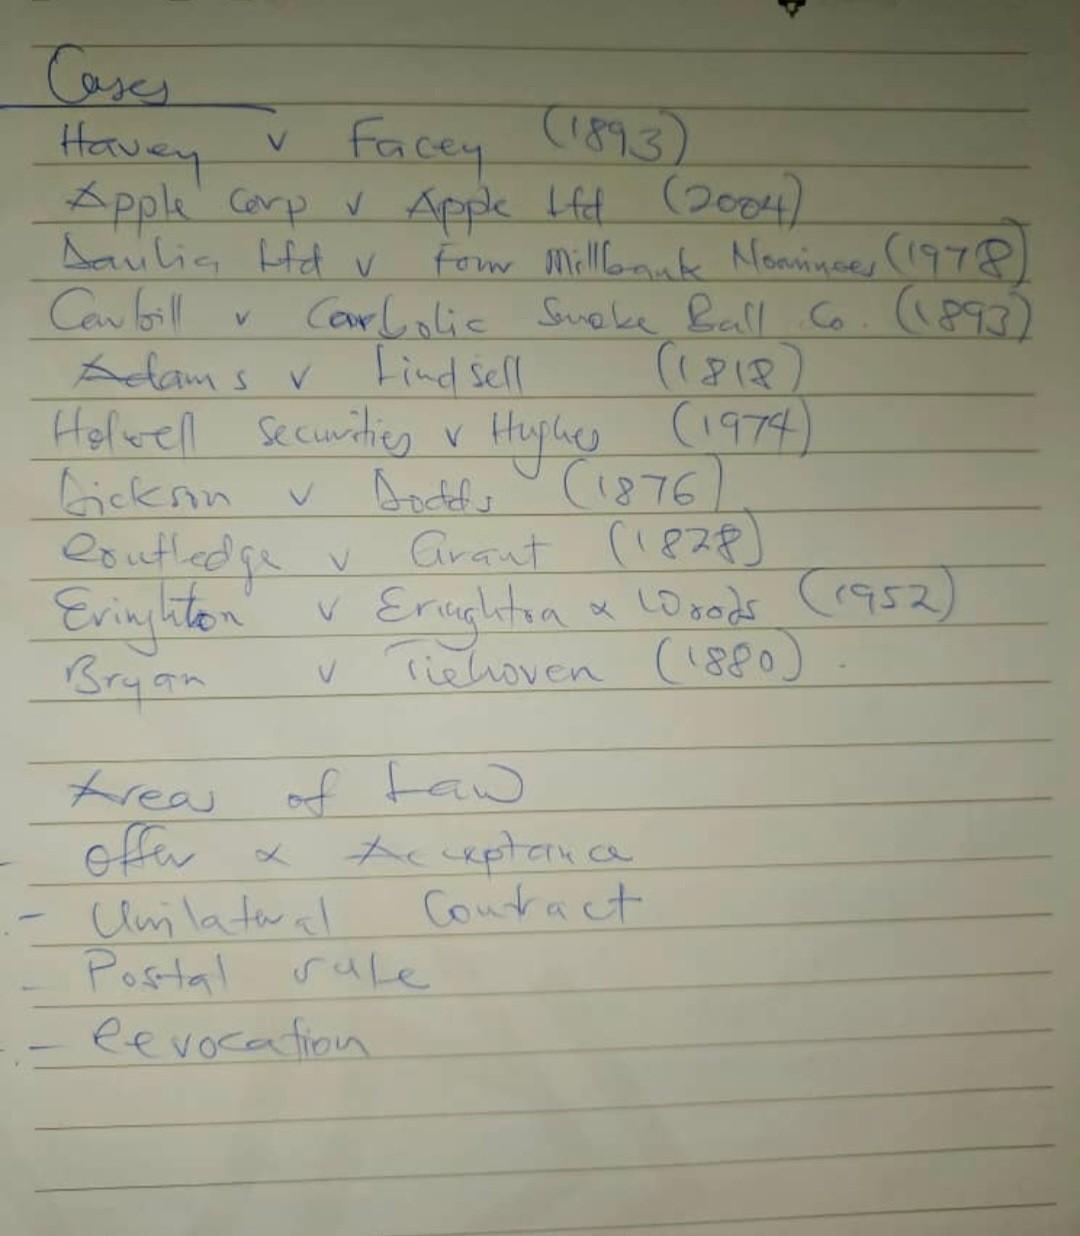 Cases
Havey v Facey (1893)
Apple Corp v Apple Ltd (2004)
Daulia Ltd v Four Millbank Nominees (1978)
Carbill v Carbolic Smoke Ball Co. (1893)
Adams v Lindsell (1818)
Holwell Securities v Hughes (1974)
Dickson v Dodds (1876)
Routledge v Grant (1828)
Eringhton v Eringhton & Woods (1952)
Bryan v Tiehoven (1880).
Areas of Law
- Offer & Acceptance
- Unilateral Contract
- Postal rule
- Revocation